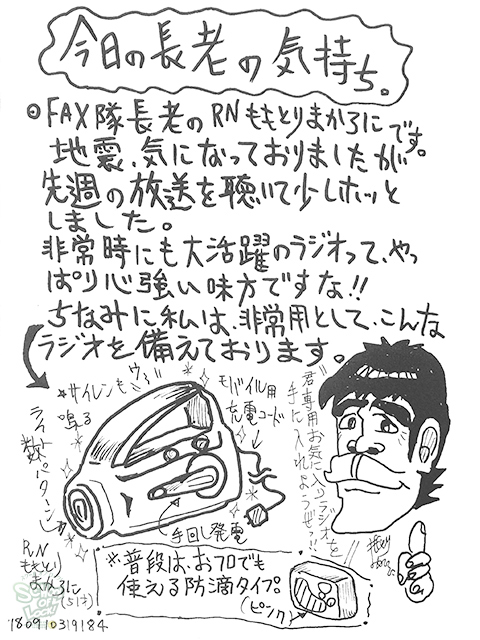 今日の長老の気持ち。
◎FAX隊長老のRNももとりまかろにです。
地震、気になっておりましたが
先週の放送を聴いて少しホッと
しました。
非常時にも大活躍のラジオって、やっ
ぱり心強い味方ですな!!
ちなみに私は、非常用として、こんな
ラジオを備えております。
サイレンもウ〜
鳴る
ライト
数パターン
モバイル用
充電コード
手回し発電
君専用お気に入りラジオを
手に入れようぜっ!!
RN
ももとり
まかろに
(51才)
※普段は、おフロでも
使える防滴タイプ。
(ピンク)
180910319184